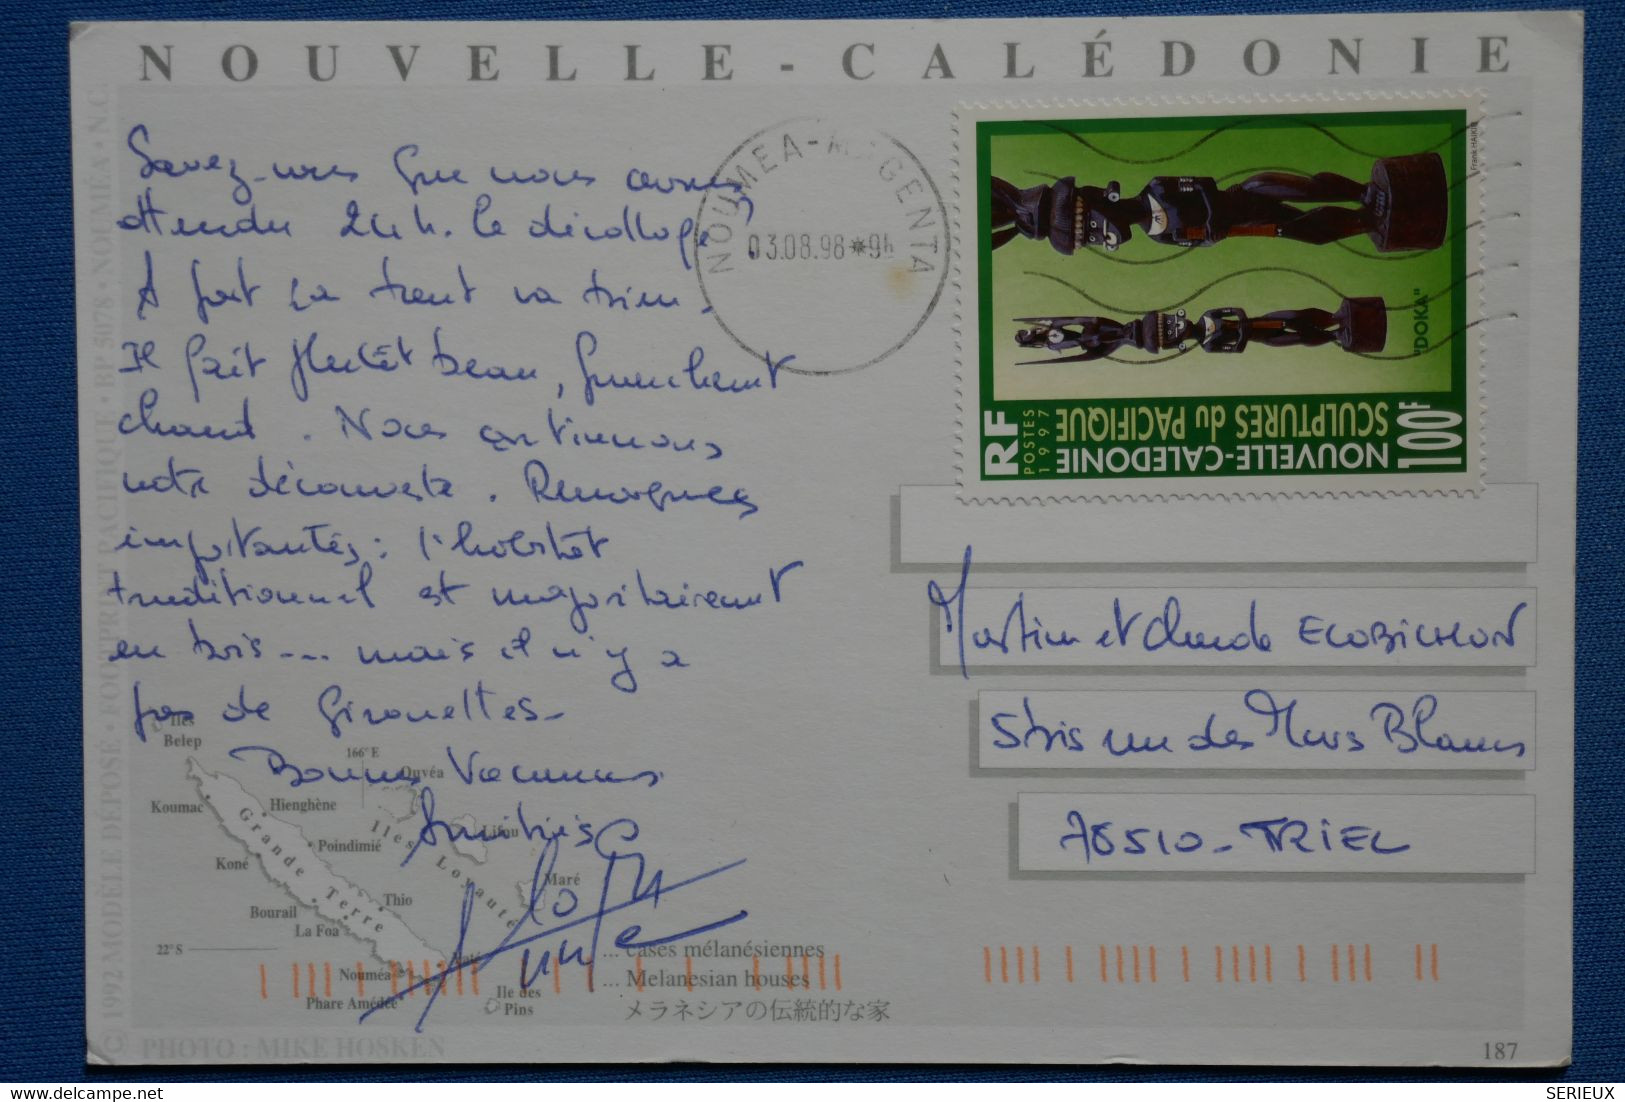 NOUVELLE-CALÉDONIE
Savez-vous que nous avons
attendu 24 h. le décollage
A part ça tout va bien.
Il fait plutôt beau, franchement
chaud. Nous continuons
notre découverte. Remarques
importantes : l'habitat
traditionnel est majoritairement
en bois ... mais il n'y a
pas de Girouettes.
Bonnes Vacances
Amitiés
NOUMEA-MAGENTA
03.08.98 *9h
Frank HAIKIU
"DOKA"
RF
POSTES
1997
NOUVELLE-CALEDONIE
SCULPTURES du PACIFIQUE
100F
Martine et Claude ECOBICHON
5 bis rue des Murs Blancs
78510 - TRIEL
Iles
Belep
166° E
Ouvéa
Koumac
Hienghène
Poindimié
Lifou
Iles Loyauté
Grande Terre
Koné
Maré
Thio
Bourail
La Foa
22° S
Yaté
Nouméa
Phare Amédée
Ile des
Pins
... cases mélanésiennes
... Melanesian houses
メラネシアの伝統的な家
© 1992 MODÈLE DÉPOSÉ • FOOTPRINT PACIFIQUE • BP 5078 • NOUMÉA • N.C.
PHOTO : MIKE HOSKEN
187
SERIEUX